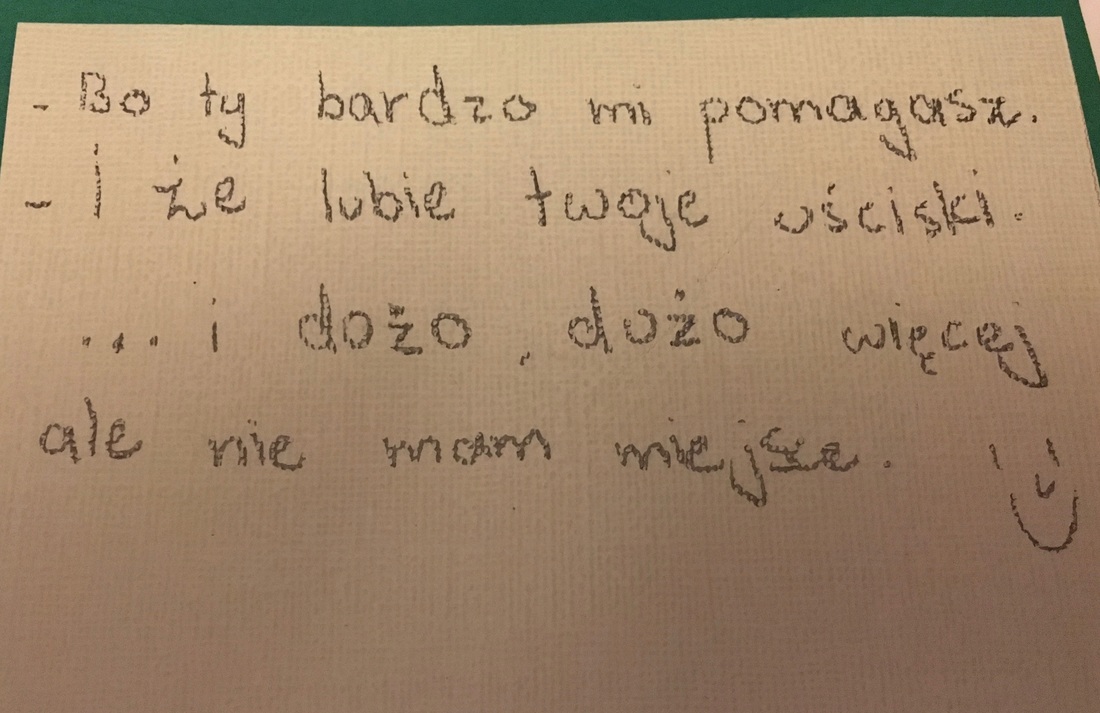 - Bo ty bardzo mi pomagasz.
- I że lubie twoje uściski.
... i dużo, dużo więcej
ale nie mam miejsze.